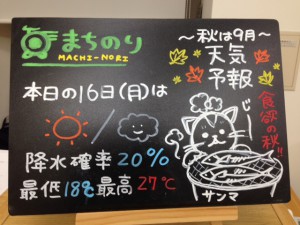 まちのり
MACHI-NORI
〜秋は9月〜
天気
予報
本日の16日(月)は
食欲の秋!!
降水確率20%
最低18℃最高27℃
サンマ